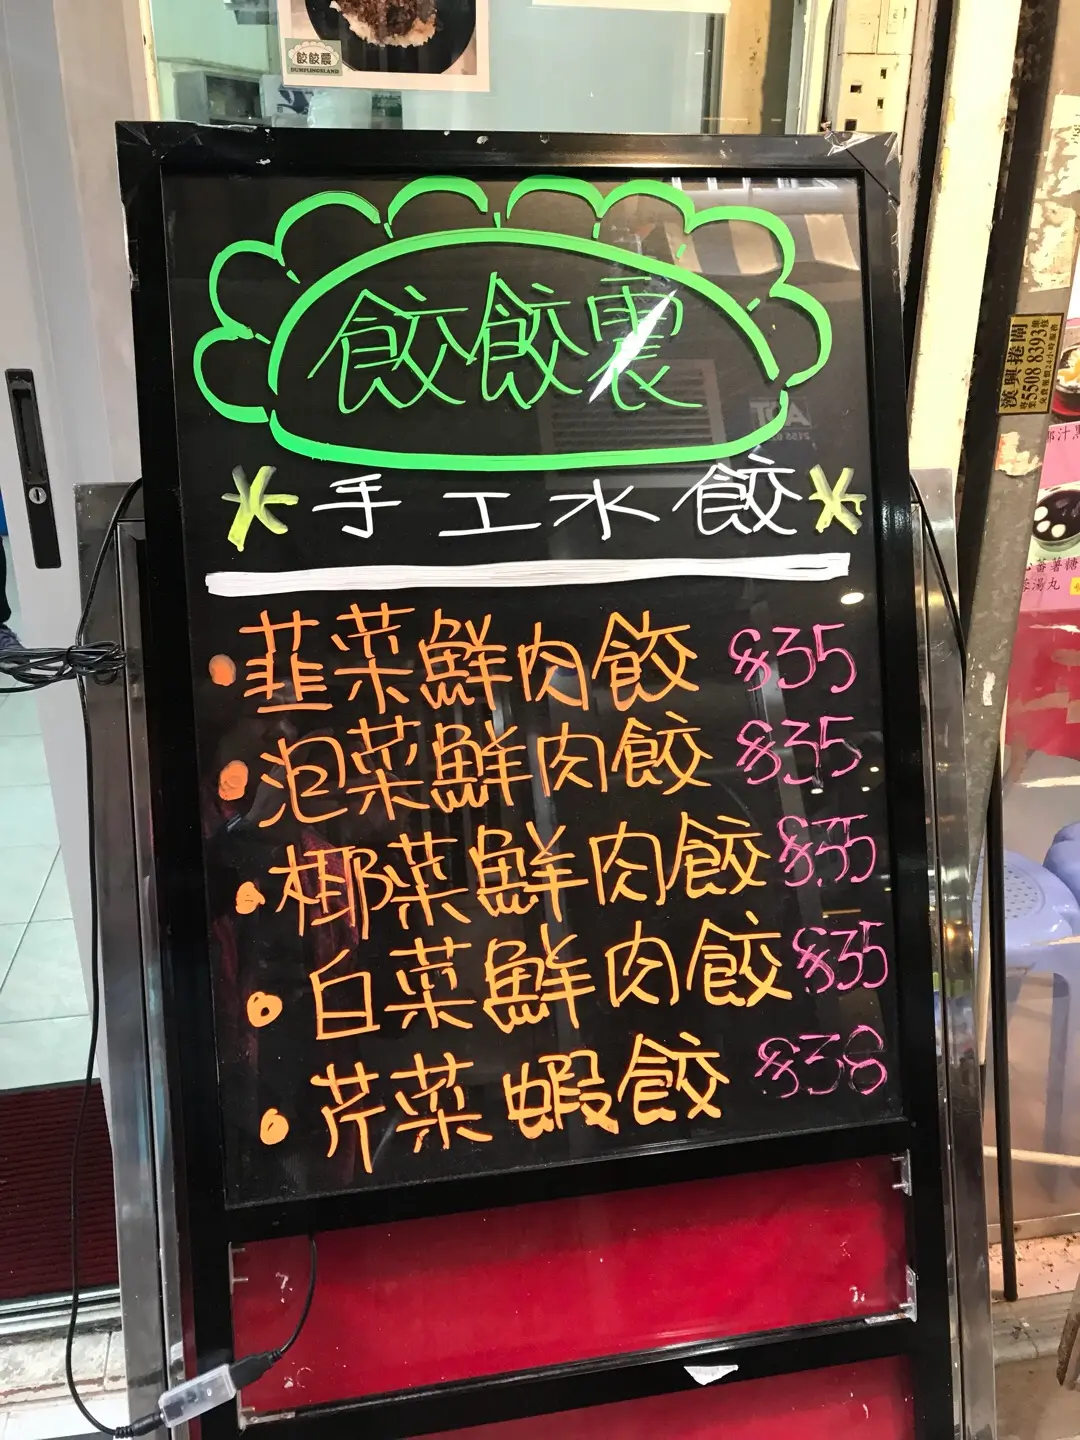 餃餃震
DUMPLINGSLAND
餃餃震
手工水餃
•韮菜鮮肉餃 $35
•泡菜鮮肉餃 $35
•椰菜鮮肉餃 $35
•白菜鮮肉餃 $35
•芹菜蝦餃 $38
漢興捲閘
5508 8393
蕃薯糖
湯丸